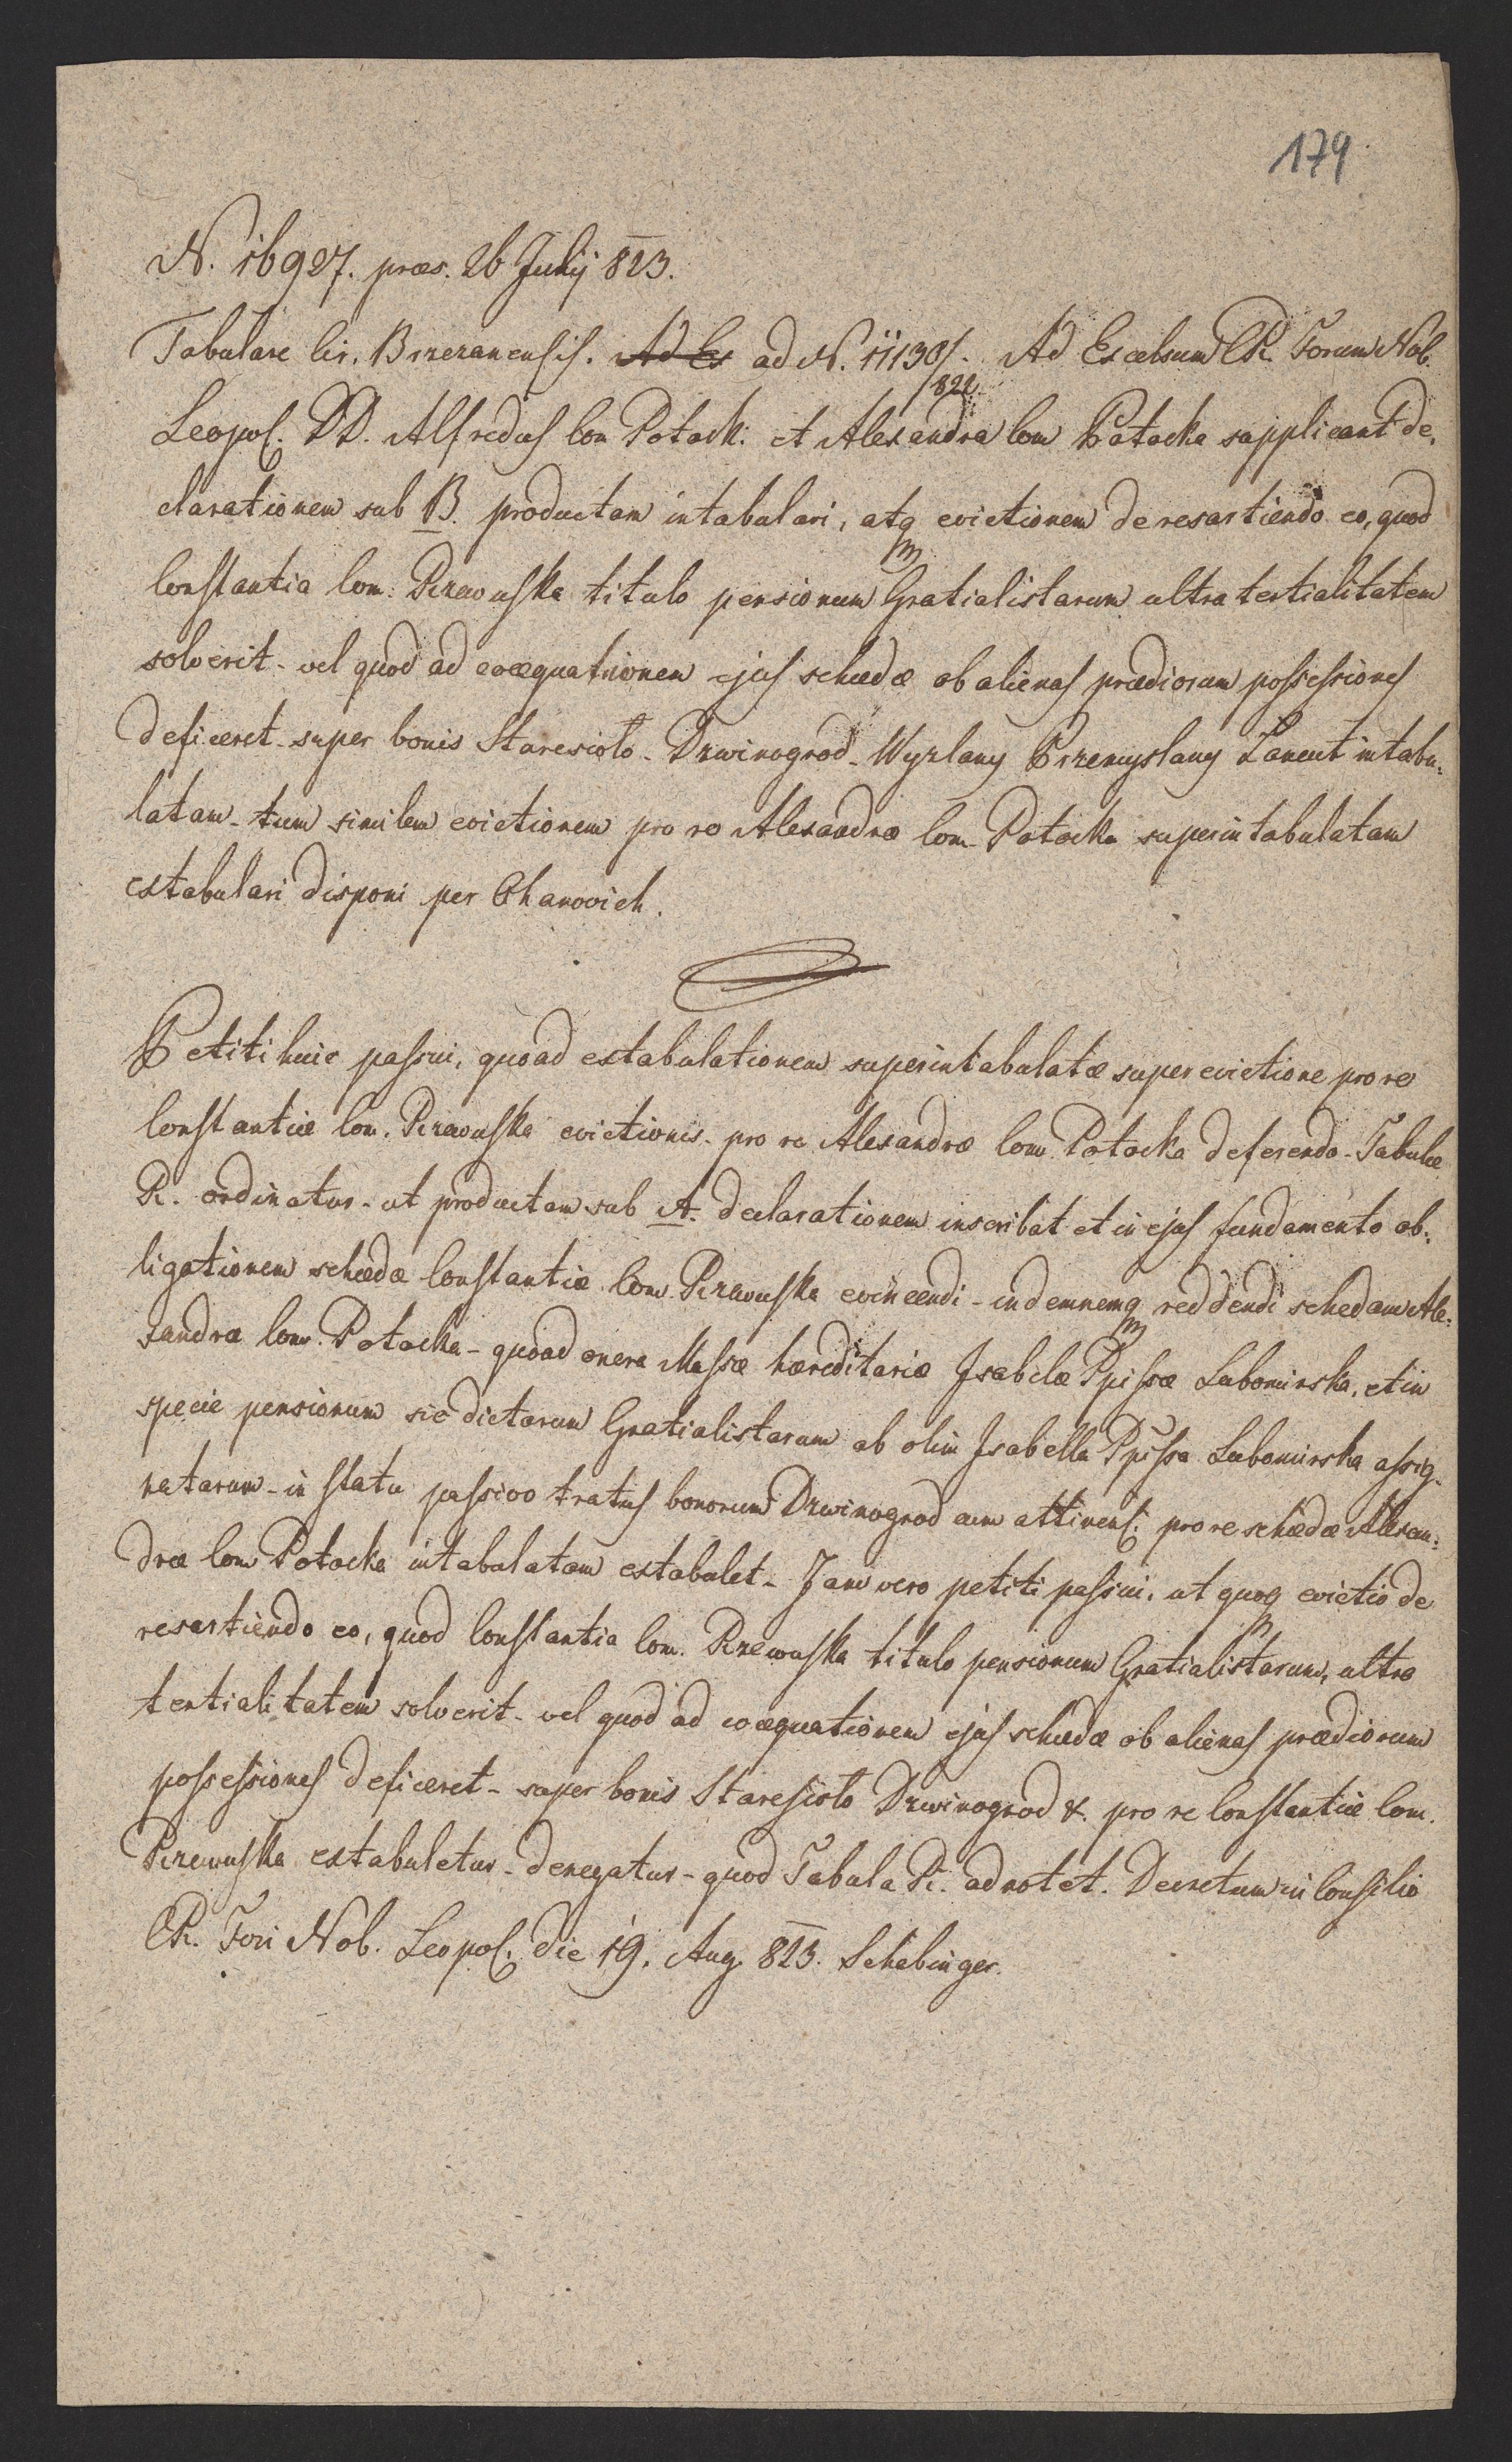 179
N. 16927. præs. 26 Julij 823.
Tabulare Cir. Brzezanensis. Ad Ex ad N. 11130/822. Ad Excelsum CR. Forum Nob.
Leopol. DD. Alfredus Com Potock: et Alexandra Com Potocka supplicant de,
clarationem sub B. productam intabulari, atq evictionem de resartiendo eo, quod
Constantia Com. Rzewuska titulo pensionum Gratialistarum ultra tertialitatem
solverit - vel quod ad coæquationem ejus schedæ ob alienas prædiorum possessiones
deficeret - super bonis Staresioło - Dzwinogrod - Wyzlany Przemyslany Łancut intabu:
latam - tum similem evictionem pro re Alexandræ Com. Potocka superintabulatam
extabulari disponi per Chanovich.
Petiti huic passui, quoad extabulationem superintabulatæ super evictione pro re
Constantiæ Com. Rzewuska evictionis - pro re Alexandræ Com. Potocka deferendo - Tabulæ
R. ordinatur - ut productam sub A. declarationem inscribat et in ejus fundamento ob:
ligationem schedæ Constantiæ Com. Rzewuska evincendi - indemnemq reddendi schedam Ale:
xandræ Com. Potocka - quoad onera Massæ hæreditariæ Isabelæ Ppissæ Lubomirska, et in
specie pensionum sic dictarum Gratialistarum ab olim Isabella Ppissa Lubomirska assig-
natarum - in statu passivo tractus bonorum Dzwinogrod cum attinens: pro re schedæ Alexan:
dræ Com Potocka intabulatam extabulet - Jam vero petiti passui, ut quoq evictio de
resartiendo eo, quod Constantia Com. Rzewuska titulo pensionum Gratialistarum, ultra
tertialitatem solverit - vel quod ad coæquationem ejus schedæ ob alienas prædiorum
possessiones deficeret - super bonis Staresioło Dzwinogrod &. pro re Constantiæ Com.
Rzewuska extabuletur - denegatur - quod Tabula R. adnotet. Decretum in Consilio
CR. Fori Nob. Leopol. die 19. Aug. 823. Schebinger.